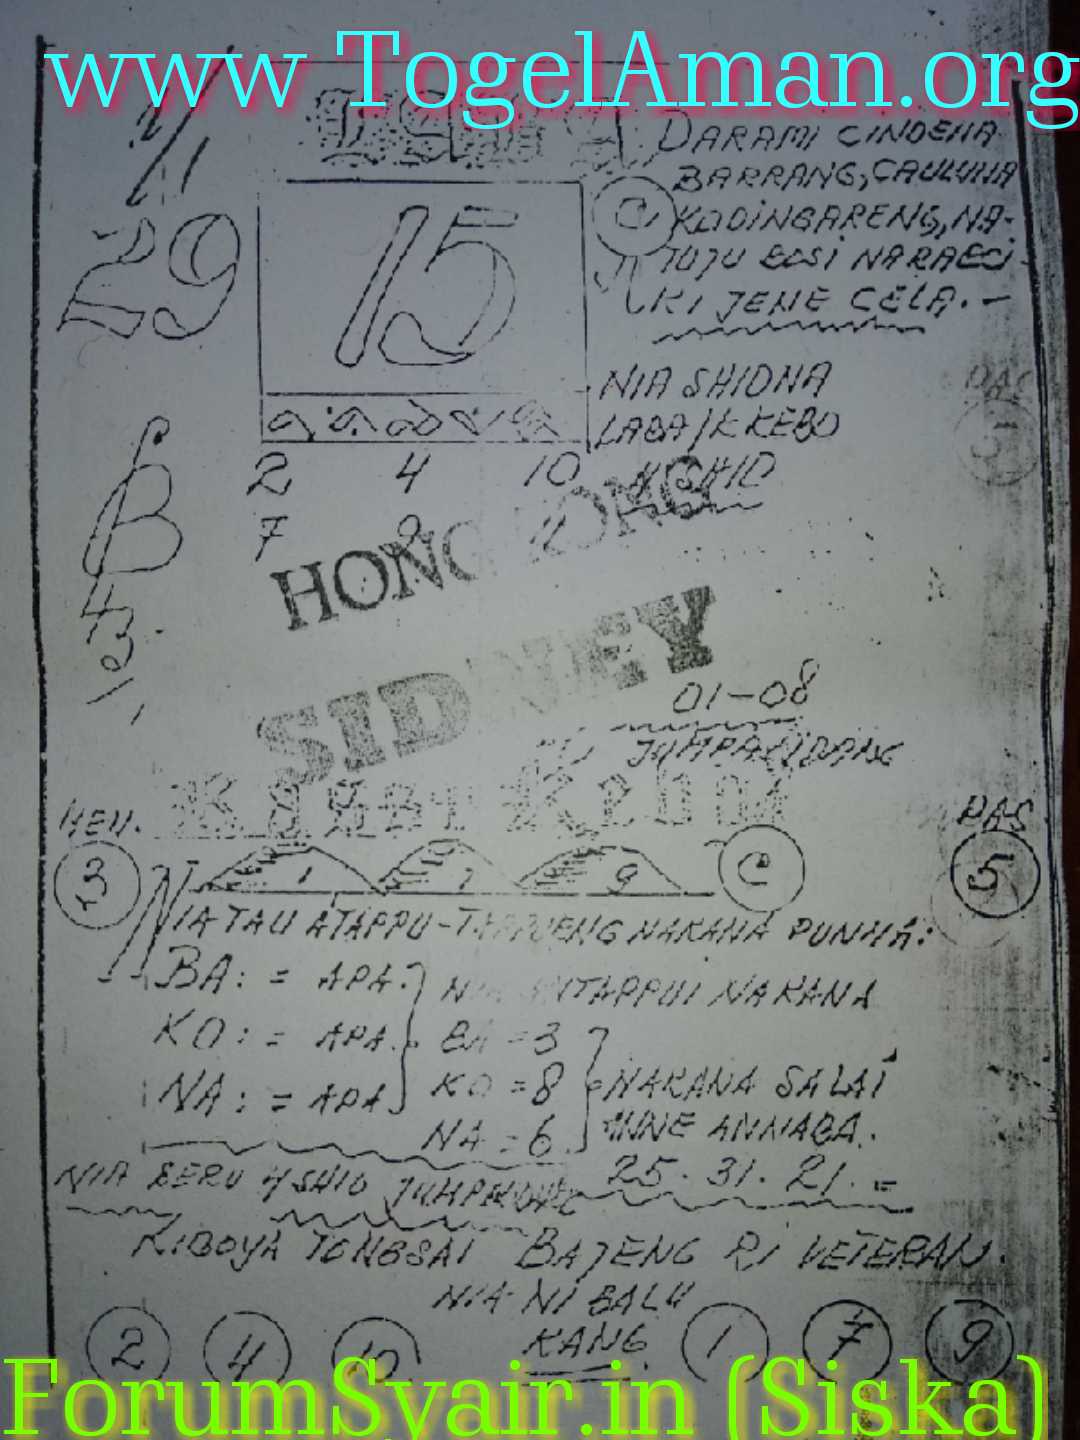 www TogelAman.org
DARAMI CINDEHA
BARRANG, CAULUHA
C
KODINGARENG, NA-
TUJU BOSI NARAECI-
KI JENE CELA.-
29
15
NIA SHIONA
LABA/K KEBO
2 4 10
7 9 11
B
4
3
HONG KONG
SIDNEY
01-08
HEU.
PAS
3
1 7 9
C
5
NIA TAU ATAPPU-TAPPUENG NAKANA PUNNA:
BA: = APA.
KO: = APA.
NA: = APA
NIA ANTAPPUI NAKANA
BA = 3
KO = 8
NA = 6
NAKANA SALAI
ANNE ANNABA.
25. 31. 21. =
NIA BERU 4 SHIO
KIBOYA TONGSAI BAJENG RI VETERAN.
NIA NI BALU
KANG
2 4 10 1 7 9
ForumSyair.in (Siska)